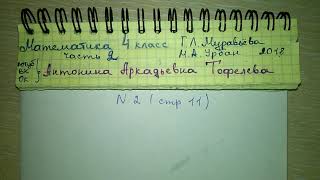 Математика 4 класс Г.Л. Муравьёва
часть 2 М.А. Урбан 2018
ютуб
ВК
Ок
Антонина Аркадьевна Тофелева
N 2 (стр 11)